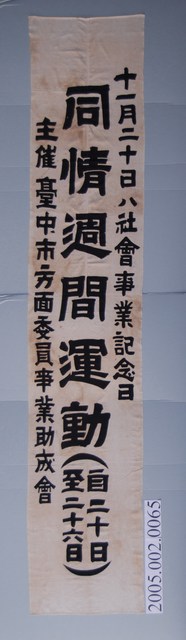 十一月二十日ハ社會事業記念日
同情週間運動(自二十日至二十六日)
主催臺中市方面委員事業助成會
2005.002.0065